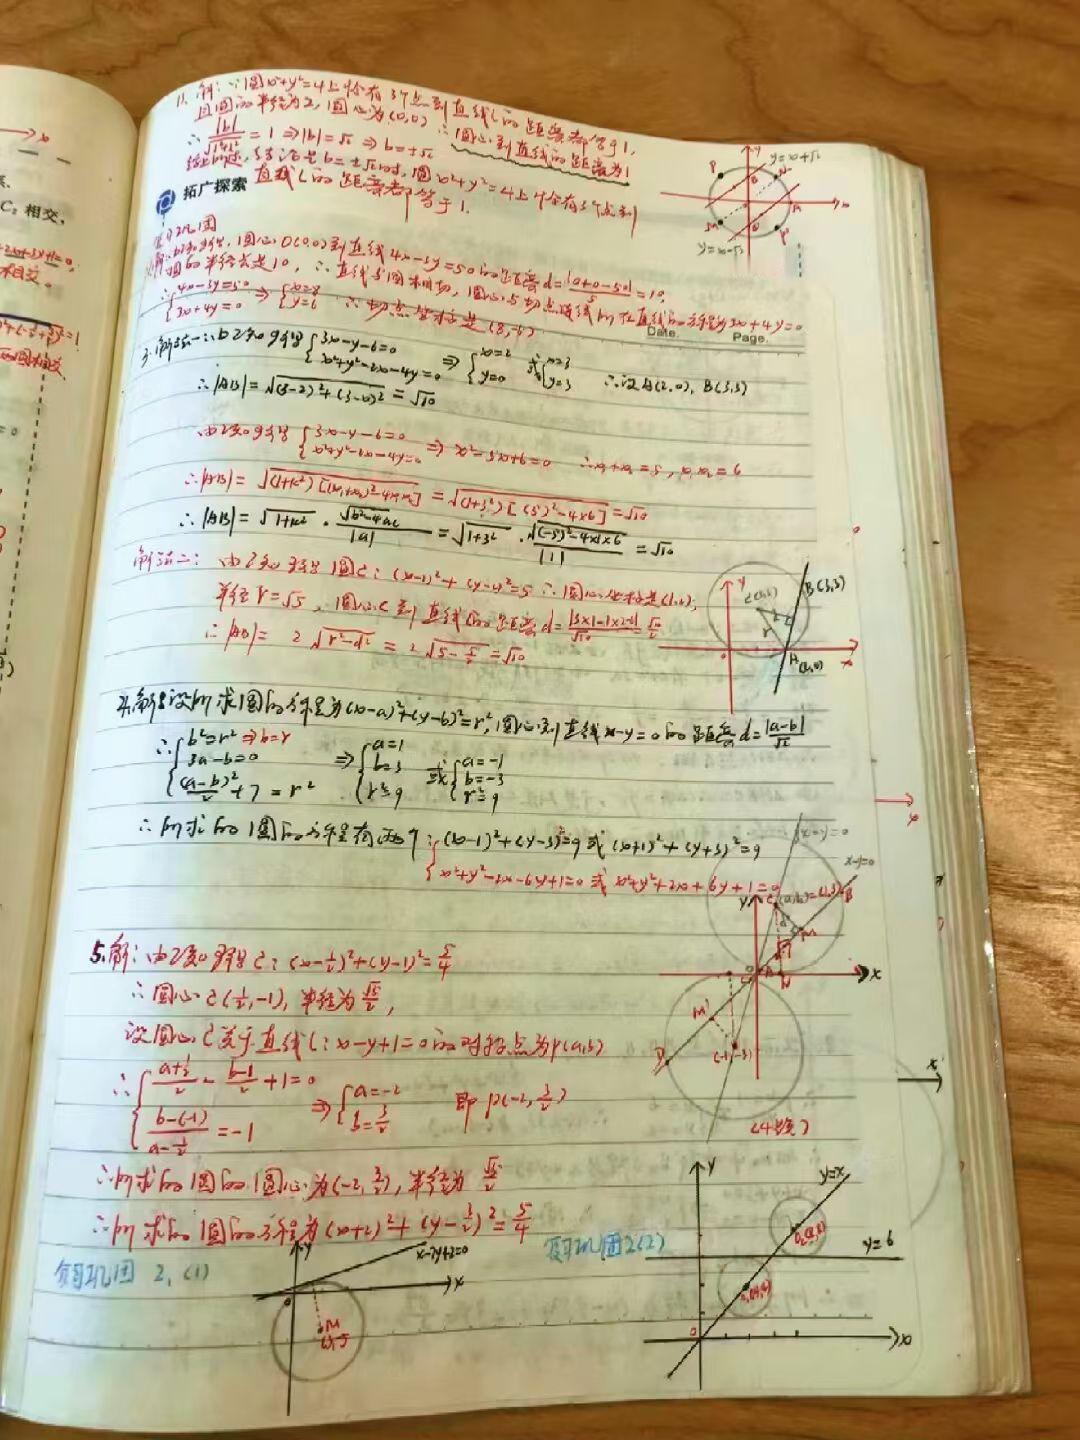 C₂ 相交,
11. 解:∵圆x²+y²=4上恰有3个点到直线l的距离都等于1,
且圆的半径为2, 圆心为(0,0) ∴圆心到直线的距离为1
∴ |b|/√(1²+1²) = 1 ⇒ |b|=√2 ⇒ b=±√2
综上所述, 当b=±√2时, 圆x²+y²=4上恰有3个点到
直线l的距离都等于1.
y=x+√2
y=x-√2
拓广探索
由已知得, 圆心O(0,0)到直线4x-3y=50的距离d=|0+0-50|/5=10,
圆的半径是10, ∴直线与圆相切, 圆心与切点连线所在直线的方程为3x+4y=0
∴ {4x-3y=50 3x+4y=0 ⇒ {x=8 y=6 ∴切点坐标是(8,-6)
Date. Page.
3. 解法一:由已知得 {3x-y-6=0 x²+y²-2x-4y=0 ⇒ {x=2 y=0 或 {x=3 y=3 ∴设A(2,0), B(3,3)
∴|AB|=√((3-2)²+(3-0)²)=√10
由已知得 {3x-y-6=0 x²+y²-2x-4y=0 ⇒ x²-5x+6=0 ∴x₁+x₂=5, x₁x₂=6
∴|AB|=√((1+k²)[(x₁+x₂)²-4x₁x₂])=√((1+3²)[(5)²-4×6])=√10
∴|AB|=√(1+k²)·√(b²-4ac)/|a|=√(1+3²)·√((-5)²-4×1×6)/|1|=√10
解法二: 由已知得圆C:(x-1)²+(y-2)²=5 ∴圆心坐标是(1,2),
半径r=√5, 圆心C到直线的距离d=|3×1-1×2-6|/√10=√5/√2
∴|AB|=2√(r²-d²)=2√(5-5/2)=√10
y
C(1,2)
B(3,3)
A(2,0)
x
4. 解:设所求圆的方程为(x-a)²+(y-b)²=r², 圆心到直线x-y=0的距离d=|a-b|/√2
∴ {b²=r² ⇒b=r 3a-b=0 (a-b)²/2+7=r² ⇒ {a=1 b=3 r²=9 或 {a=-1 b=-3 r²=9
∴所求的圆的方程有两个:(x-1)²+(y-3)²=9或(x+1)²+(y+3)²=9
{x²+y²-2x-6y+1=0 或 x²+y²+2x+6y+1=0
3x-y=0
x-y=0
C(a,b)=(1,3)
B
M
x
M'
D
(-1,-3)
(4题)
5. 解:由已知得C:(x-1/2)²+(y-1)²=5/4
∴圆心C(1/2,-1), 半径为√5/2,
设圆心C关于直线l:x-y+1=0的对称点为P(a,b)
∴ {(a+1/2)/2-(b-1)/2+1=0 (b-(-1))/(a-1/2)=-1 ⇒ {a=-2 b=3/2 即P(-2,3/2)
∴所求的圆的圆心为(-2,3/2), 半径为√5/2
∴所求的圆的方程为(x+2)²+(y-3/2)²=5/4
复习巩固 2,(1)
x-2y+2=0
y
x
M
复习巩固2(2)
y
y=x
y=6
O₁(4,4)
x